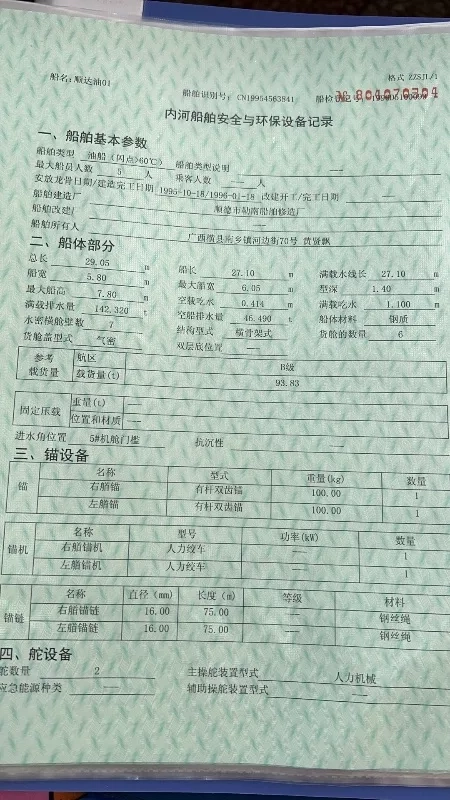 船名：顺达油01
格式 ZZSJL/1
船舶识别号：CN19954563841
船检登记号：
内河船舶安全与环保设备记录
一、船舶基本参数
船舶类型 油船（闪点>60℃） 船舶类型说明
最大船员人数 5 人 乘客人数 —— 人
安放龙骨日期/建造完工日期 1995-10-18/1996-01-18 改建开工/完工日期
船舶建造厂 顺德市勒南船舶修造厂
船舶改建厂 ——
船舶所有人 广西横县南乡镇河边街70号 黄贤飘
二、船体部分
总长 29.05 m 船长 27.10 m 满载水线长 27.10 m
船宽 5.80 m 最大船宽 6.05 m 型深 1.40 m
最大船高 7.80 m 空载吃水 0.414 m 满载吃水 1.100 m
满载排水量 142.320 t 空船排水量 46.490 t 船体材料 钢质
水密横舱壁数 7 结构型式 横骨架式 货舱的数量 6
货舱盖型式 气密 双层底位置 ——
参考载货量 航区 B级
载货量(t) 93.83
固定压载 重量(t) ——
位置和材质 ——
进水角位置 5#机舱门槛 抗沉性 ——
三、锚设备
锚 名称 型式 重量(kg) 数量
右艏锚 有杆双齿锚 100.00 1
左艏锚 有杆双齿锚 100.00 1
锚机 名称 型号 功率(kW) 数量
右艏锚机 人力绞车 —— 1
左艏锚机 人力绞车 —— 1
锚链 名称 直径(mm) 长度(m) 等级 材料
右艏锚链 16.00 75.00 —— 钢丝绳
左艏锚链 16.00 75.00 —— 钢丝绳
四、舵设备
舵数量 2 主操舵装置型式 人力机械
应急能源种类 —— 辅助操舵装置型式 ——